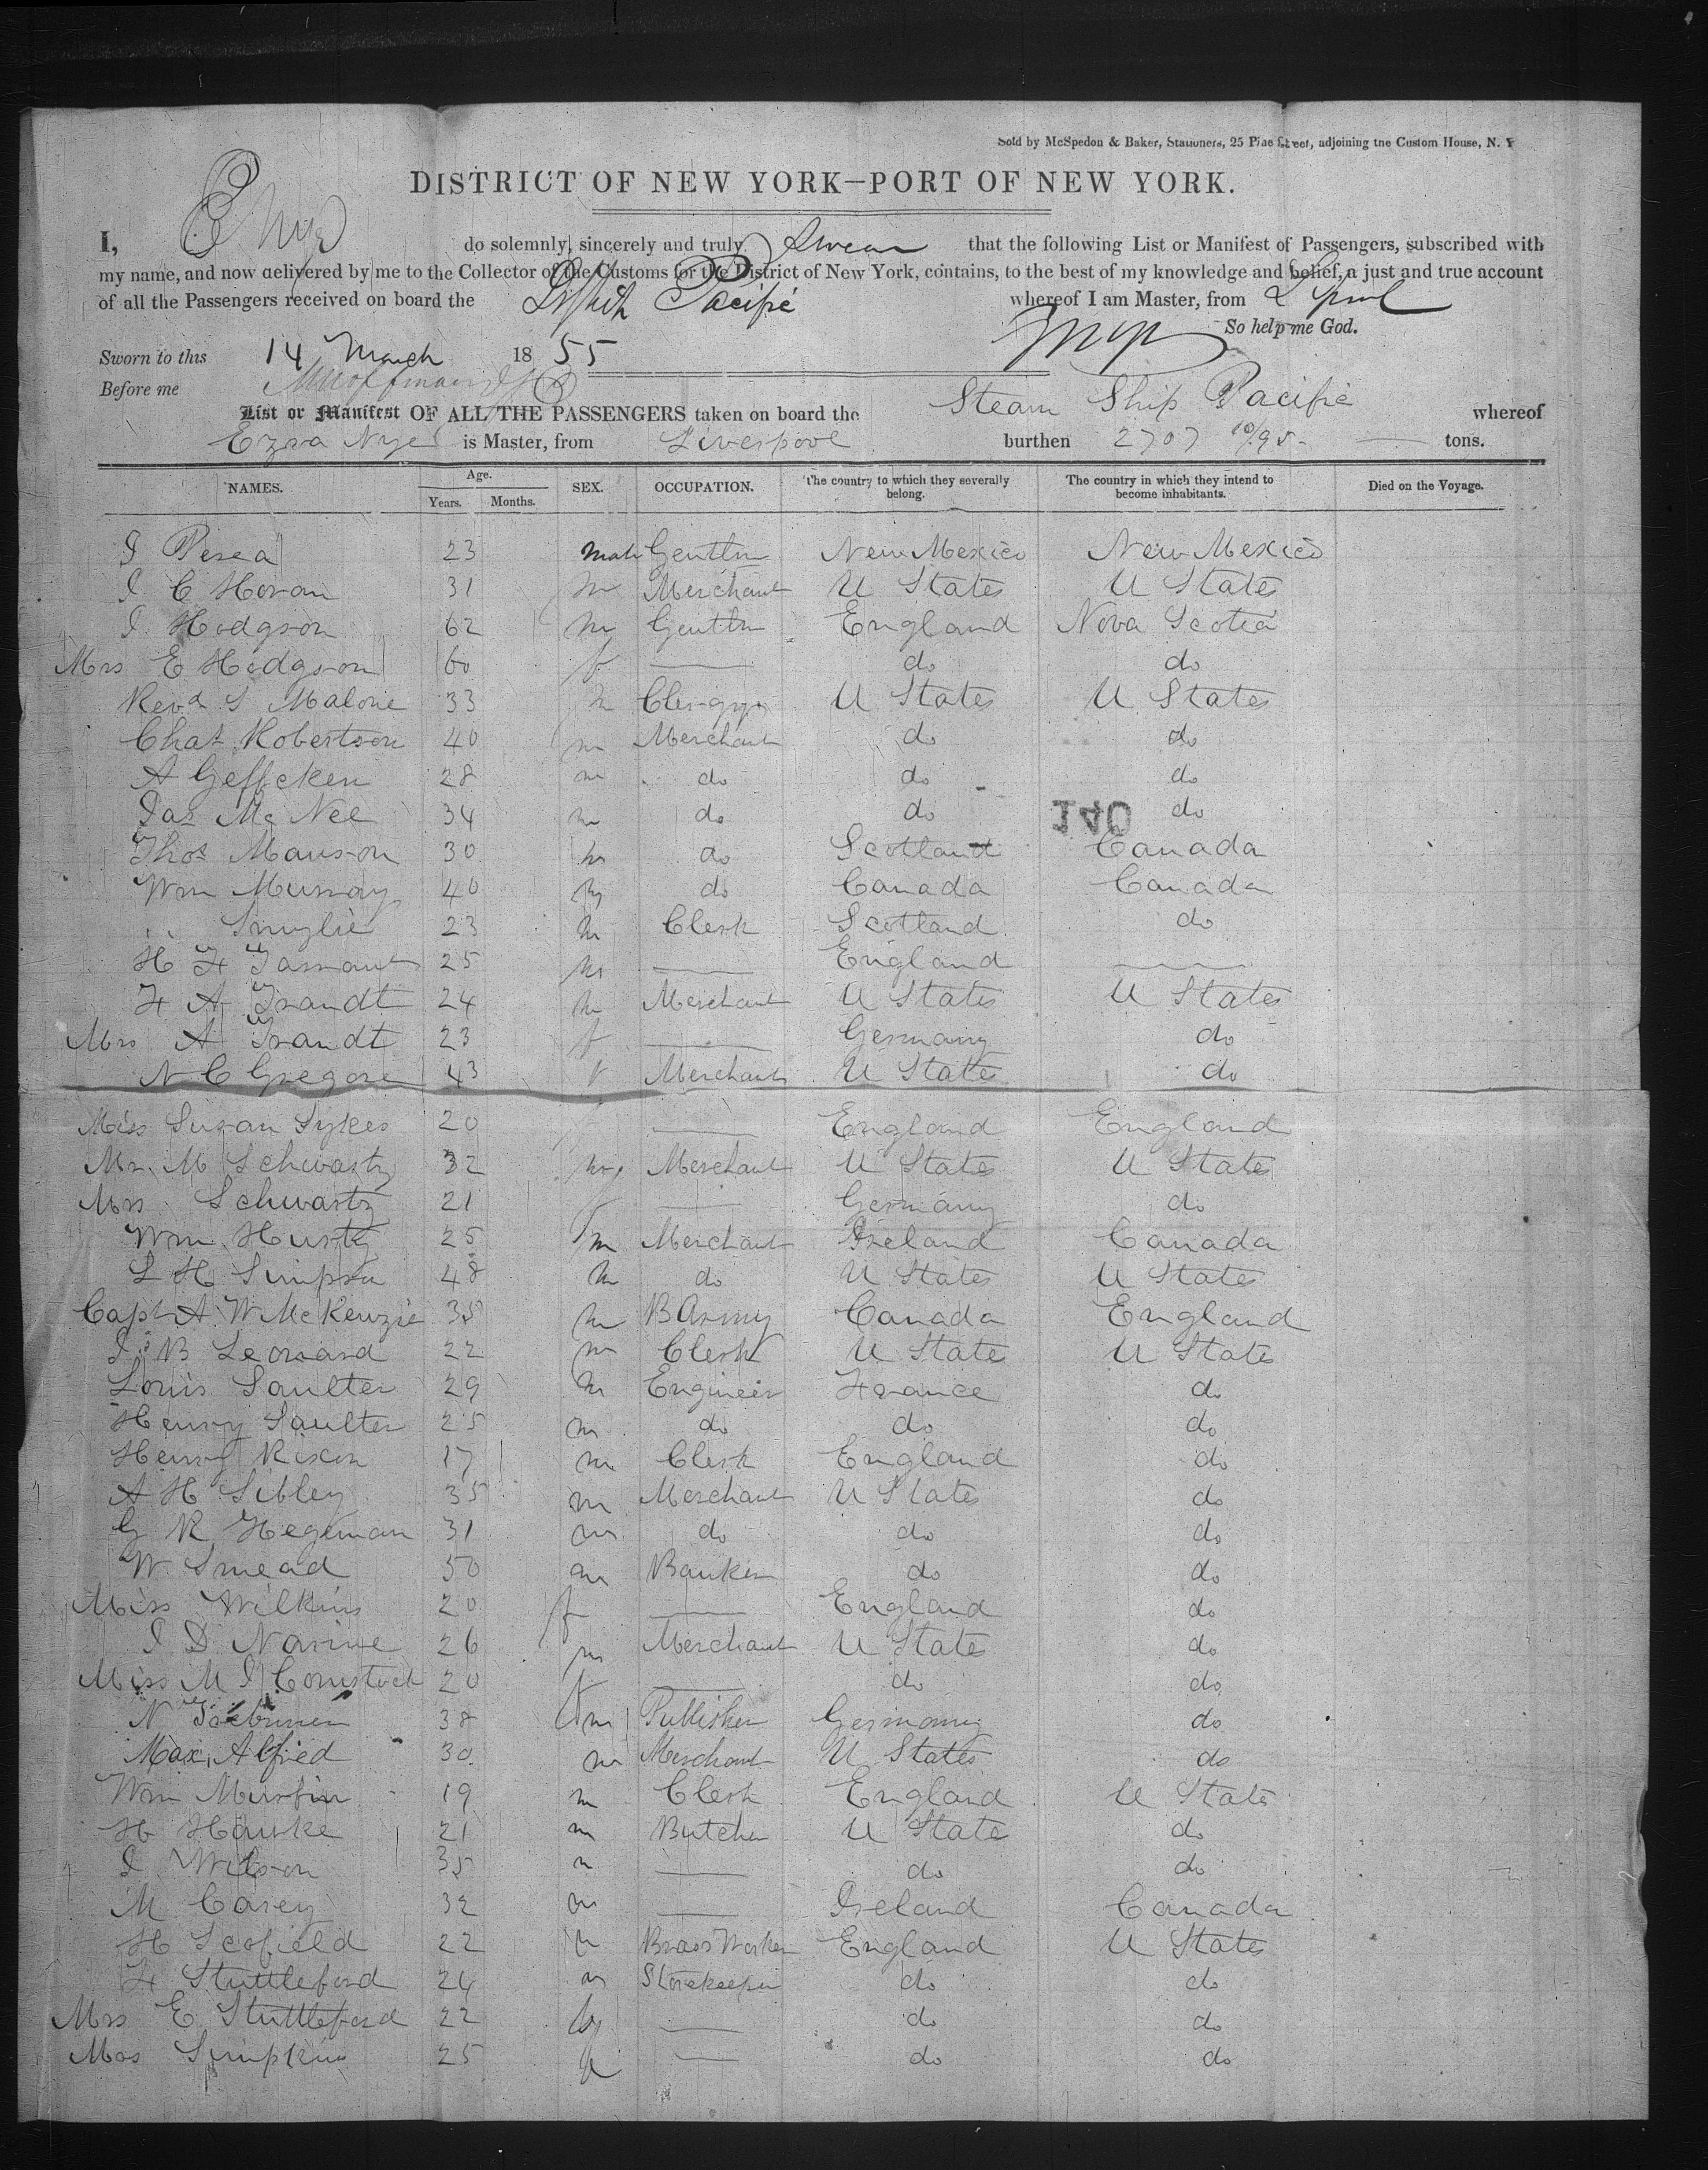 Sold by McSpedon & Baker, Stationers, 25 Pine Street, adjoining the Custom House, N. Y
DISTRICT OF NEW YORK—PORT OF NEW YORK.
I, E Nye do solemnly, sincerely and truly Swear that the following List or Manifest of Passengers, subscribed with
my name, and now delivered by me to the Collector of the Customs for the District of New York, contains, to the best of my knowledge and belief, a just and true account
of all the Passengers received on board the Pacific whereof I am Master, from Lpool
So help me God.
Sworn to this 14 March 1855
Before me
List or Manifest OF ALL THE PASSENGERS taken on board the Steam Ship Pacific whereof
Ezra Nye is Master, from Liverpool burthen 2707 10/95 tons.
NAMES. Age. Years. Months. SEX. OCCUPATION. The country to which they severally belong. The country in which they intend to become inhabitants. Died on the Voyage.
J Perea 23 male Gentln New Mexico New Mexico
J C Horan 31 m Merchant U States U States
J Hodgson 62 m Gentln England Nova Scotia
Mrs E Hodgson 60 f — do do
Revd S Malone 33 m Clergyn U States U States
Chas Robertson 40 m Merchant do do
A Geffcken 28 m do do do
Jas Mc Nee 34 m do do do
140
Thos Manson 30 m do Scotland Canada
Wm Murray 40 m do Canada Canada
" Smylie 23 m Clerk Scotland do
H F Tarrant 25 m — England —
F A Brandt 24 m Merchant U States U States
Mrs A Brandt 23 f — Germany do
N C Gregore 43 Merchant U States do
Miss Susan Sykes 20 — England England
Mr M Schwartz 32 m Merchant U States U States
Mrs Schwartz 21 f — Germany do
Wm Hurtz 25 m Merchant Ireland Canada
L H Simpson 48 m do U States U States
Capt A W McKenzie 35 m B Army Canada England
J B Leonard 22 m Clerk U States U States
Louis Saulter 29 m Engineer France do
Henry Saulter 25 m do do do
Henry Rixon 17 m Clerk England do
A H Sibley 35 m Merchant U States do
G R Hegeman 31 m do do do
W Smead 50 m Banker do do
Miss Wilkins 20 f — England do
J D Navine 26 m Merchant U States do
Miss M J Comstock 20 f — do do
N 38 m Publisher Germany do
Max Alfred 30 m Merchant U States do
Wm Murfin 19 m Clerk England U State
H Hawke 21 m Butcher U State do
J Wilson 35 m — do do
M Casey 32 m — Ireland Canada
H Scofield 22 m Brass Worker England U States
F Stuttleford 24 m Storekeeper do do
Mrs E Stuttleford 22 f — do do
Mrs Simpkins 25 f — do do